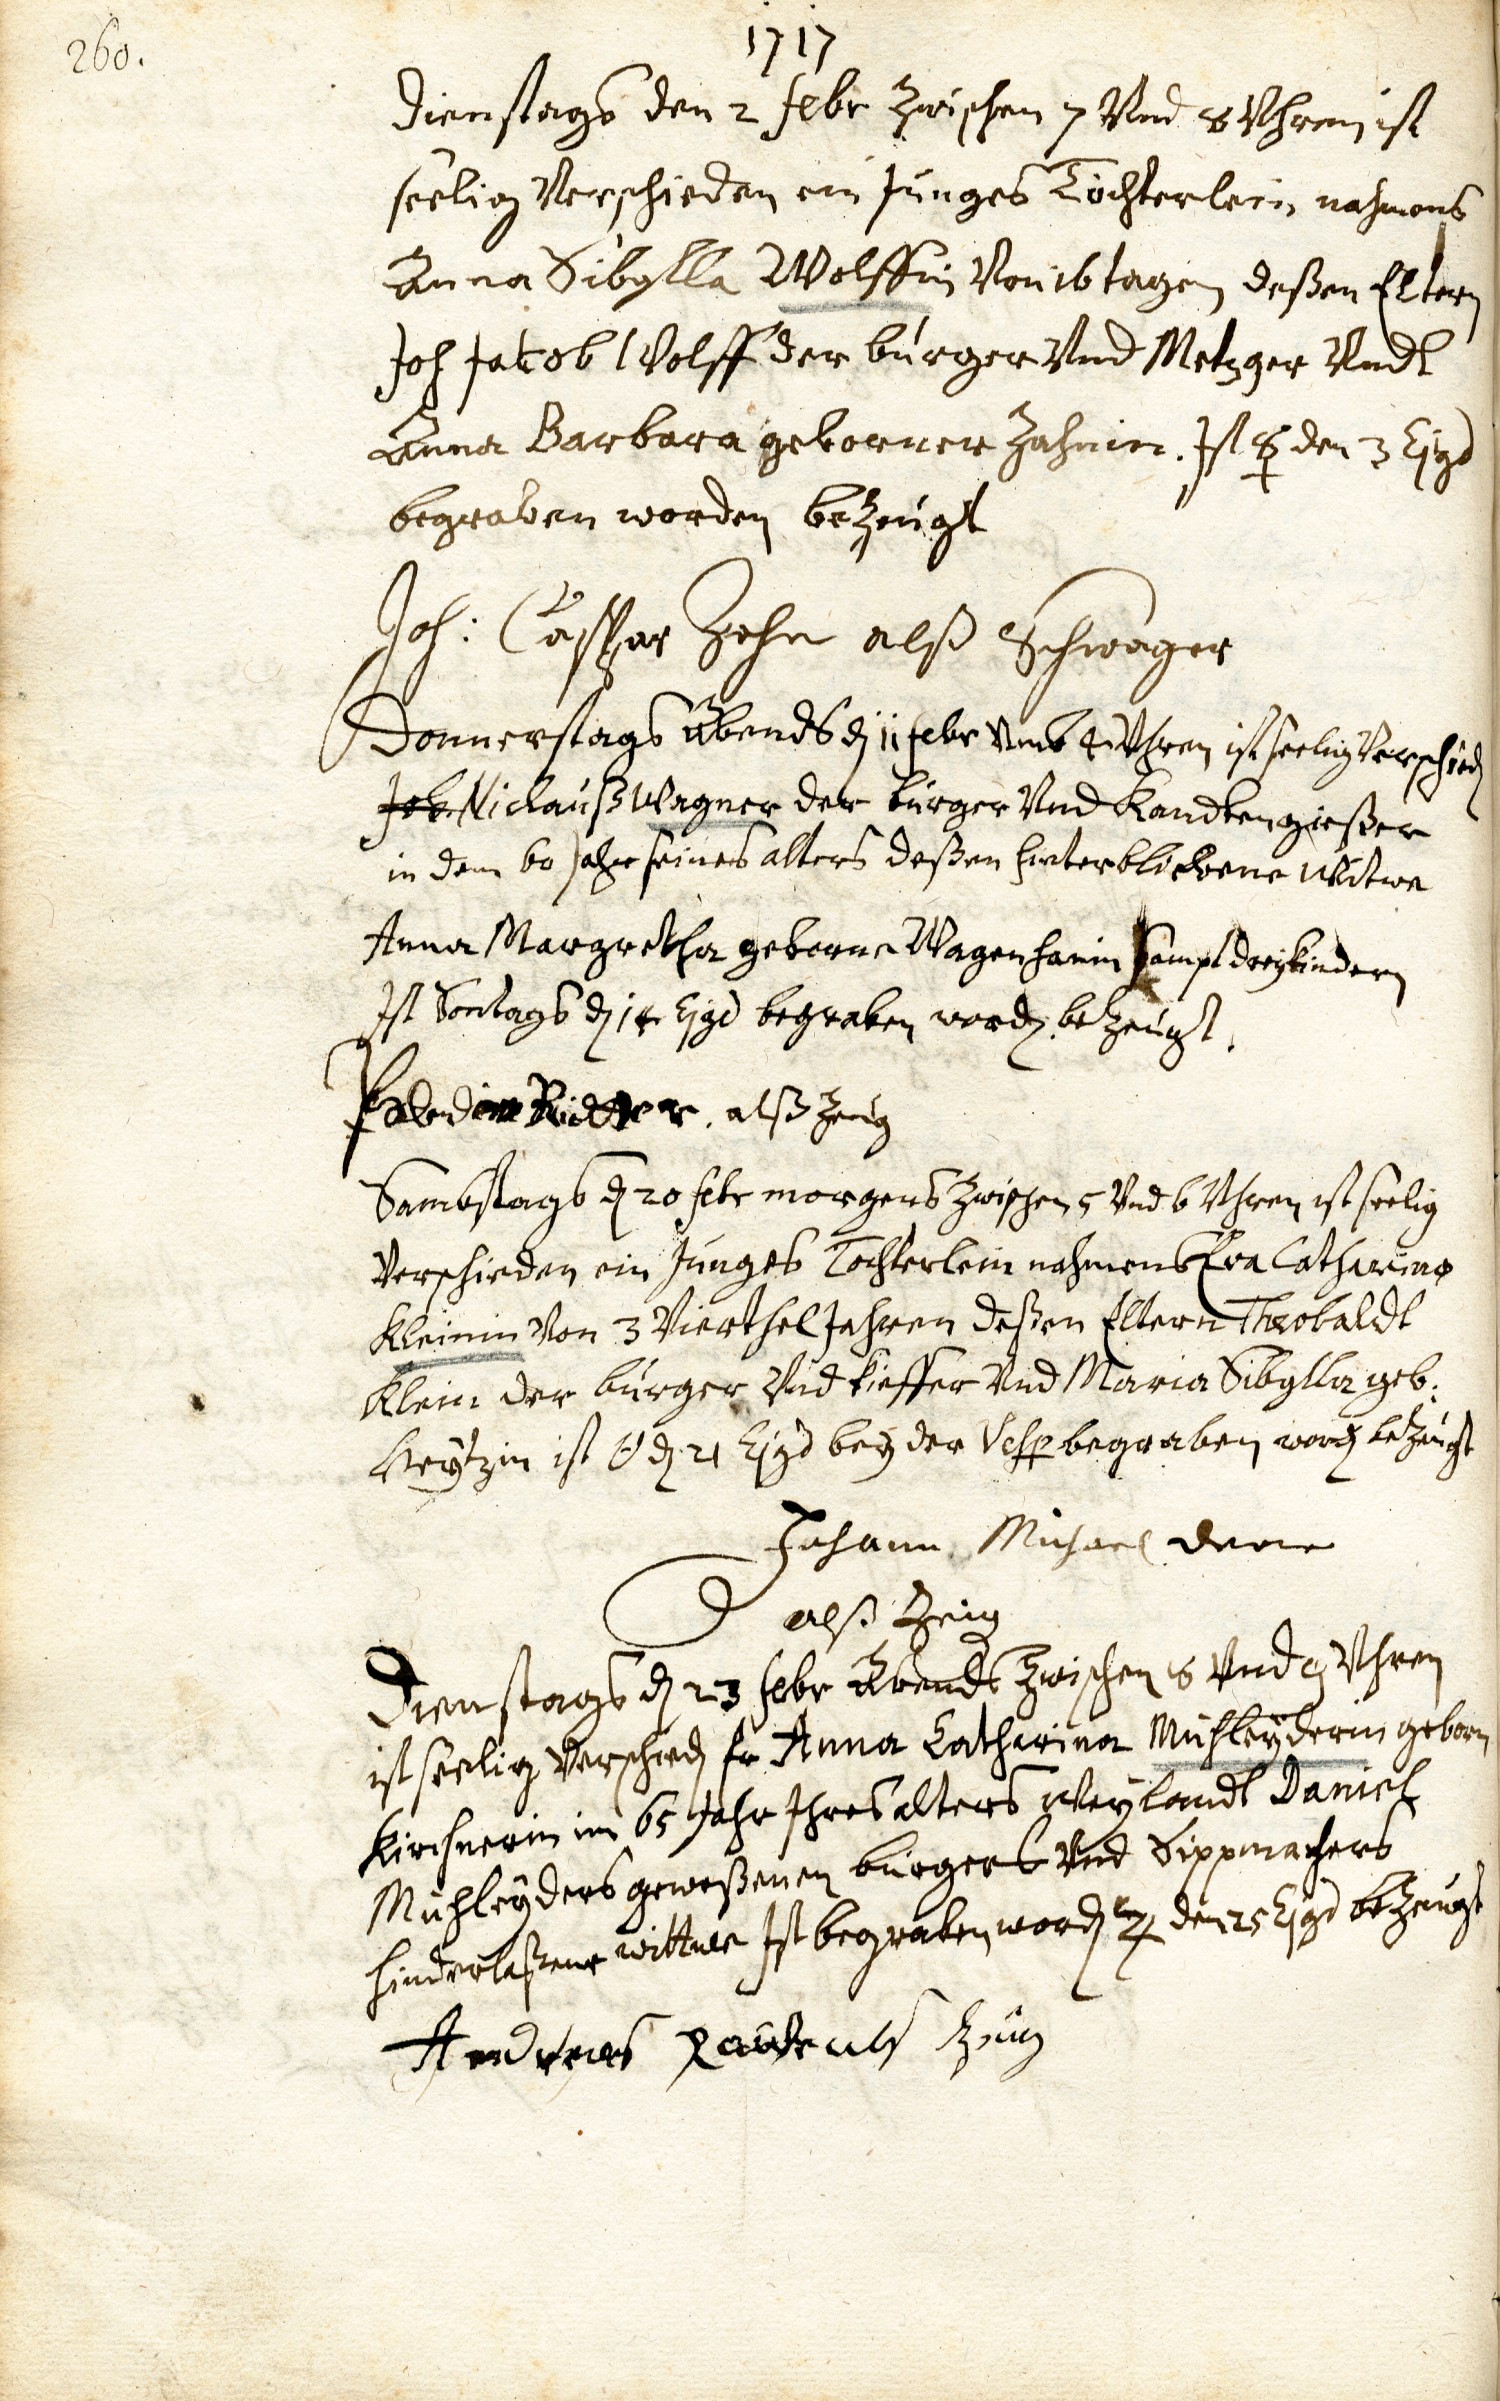 260.
1717
Dienstags den 2 febr zwischen 7 Vnd 8 Vhren ist
seelig Verschieden ein Junges Töchterlein nahmens
Anna Sibylla Wolffin Von 16 tagen deßen Eltern
Joh Jacob Wolff der bürger Vnd Metzger Vndt
Anna Barbara geborner Zahnin. Ist ☿ den 3 Ejgd
begraben worden bezeugt
Joh: Caspar Zehn alß Schwager
Donnerstags Abends d 11 febr Vmb 4 Vhren ist seelig Verschied
Job. Niclauß Wagner der bürger Vnd Kandtengießer
in dem 60 Jahr seines alters deßen hinterbliebene Witwe
Anna Margretha geborne Wagenhanin Sampt drey kindern
Ist Sontags d 14 Ejgd begraben word bezeugt.
Ritter. alß Zeug
Sambstags d 20 febr morgens zwischen 5 Vnd 6 Vhren ist seelig
Verschieden ein Junges Tochterlein nahmens Eva Catharina
Kleinin Von 3 Vierthel Jahren deßen Eltern Theobaldt
Klein der bürger Vnd kieffer Vnd Maria Sibylla geb:
ist ☉ d 21 Ejgd bey der Vesp begraben word bezeugt
Johann Michael
alß Zeug
Dienstags d 23 febr Abends zwischen 8 Vnd 9 Vhren
ist seelig Verschied fr Anna Catharina Mühleyderin geborn
Kirchnerin im 65 Jahr Ihres alters Weylandt Daniel
Mühleyders geweßenen bürgers Vnd Sippmachers
hinderlaßene wittwe Ist begraben word ♃ den 25 Ejgd bezeugt
Andreas als Zeug